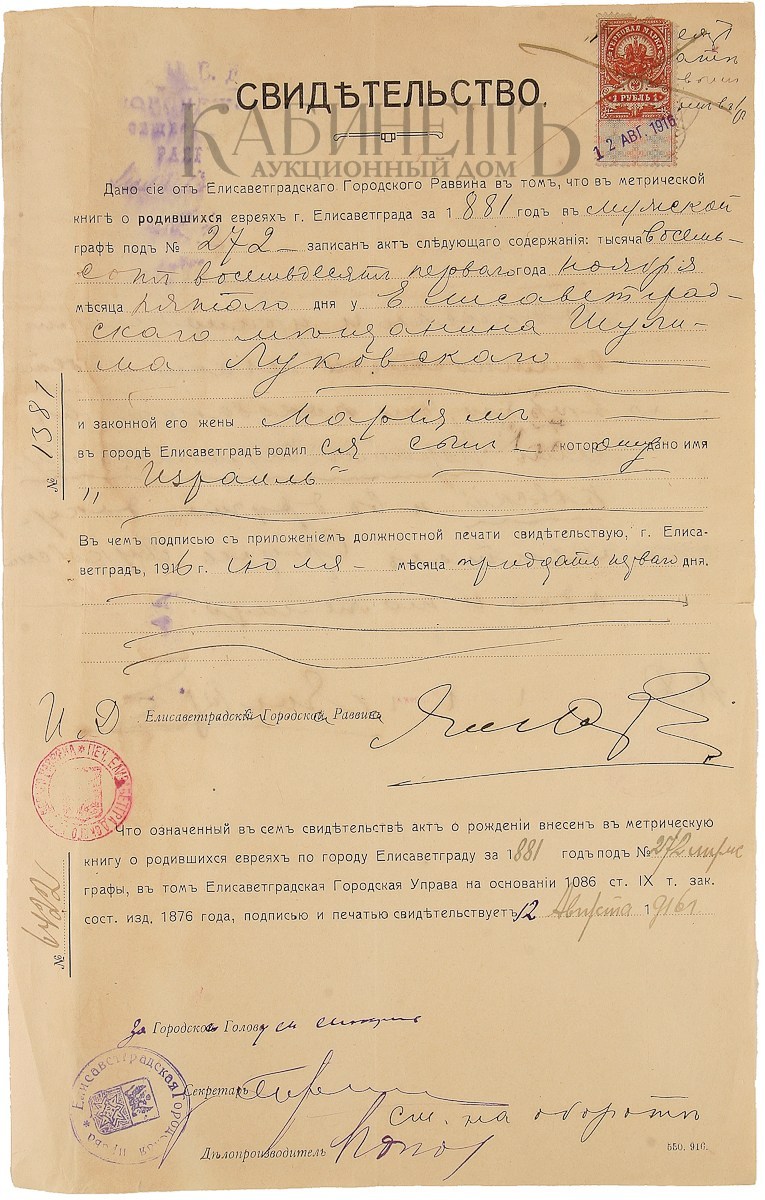 ГЕРБОВАЯ МАРКА
1 РУБЛЬ 1
12 АВГ. 1916
СВИДѢТЕЛЬСТВО.
КАБИНЕТЪ
АУКЦИОННЫЙ ДОМ
Дано сіе отъ Елисаветградскаго Городского Раввина въ томъ, что въ метрической
книгѣ о родившихся евреяхъ г. Елисаветграда за 1881 годъ въ мужской
графѣ подъ № 272 записанъ актъ слѣдующаго содержанія: тысяча восемь-
сотъ восемьдесятъ перваго года ноября
мѣсяца пятаго дня у Елисаветград-
скаго мѣщанина Шули-
ма Луковскаго
и законной его жены Маріямъ
въ городѣ Елисаветградѣ родился сынъ которому дано имя
„Израиль“
Въ чемъ подписью съ приложеніемъ должностной печати свидѣтельствую, г. Елиса-
ветградъ, 1916 г. іюля мѣсяца тридцать перваго дня.
№ 1381
И. Д. Елисаветградскій Городской Раввинъ
Что означенный въ семъ свидѣтельствѣ актъ о рожденіи внесенъ въ метрическую
книгу о родившихся евреяхъ по городу Елисаветграду за 1881 годъ подъ № 272 мужс
графы, въ томъ Елисаветградская Городская Управа на основаніи 1086 ст. IX т. зак.
сост. изд. 1876 года, подписью и печатью свидѣтельствуетъ 12 Августа 1916 г
№ 6422
За Городского Голову
Секретарь
См. на оборотѣ
Дѣлопроизводитель
550. 916.
Елисаветградская Городская Управа